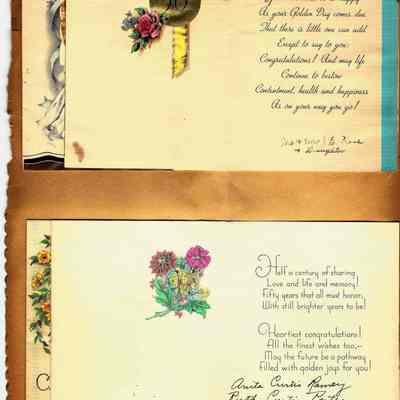 As your Golden Day comes due
That there is little one can add
Except to say to you:
Congratulations! And may life
Continue to bestow
Contentment, health and happiness
As on your way you go!
Half a century of sharing
Love and life and memory!
Fifty years that all must honor,
With still brighter years to be!
Heartiest congratulations!
All the finest wishes too,--
May the future be a pathway
Filled with golden joys for you!
Anita Curtis Ramey
Ruth Curtis